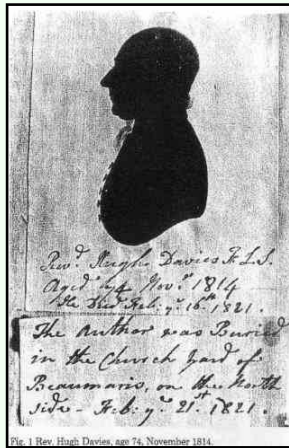 Revd. Hugh Davies F.L.S.
Aged 74 Novr. 1814
He Died Feb: ye. 16th 1821.
The Author was Buried
in the Church Yard of
Beaumaris, on the North
side - Feb: ye. 21st. 1821.
Fig. 1 Rev. Hugh Davies, age 74, November 1814.